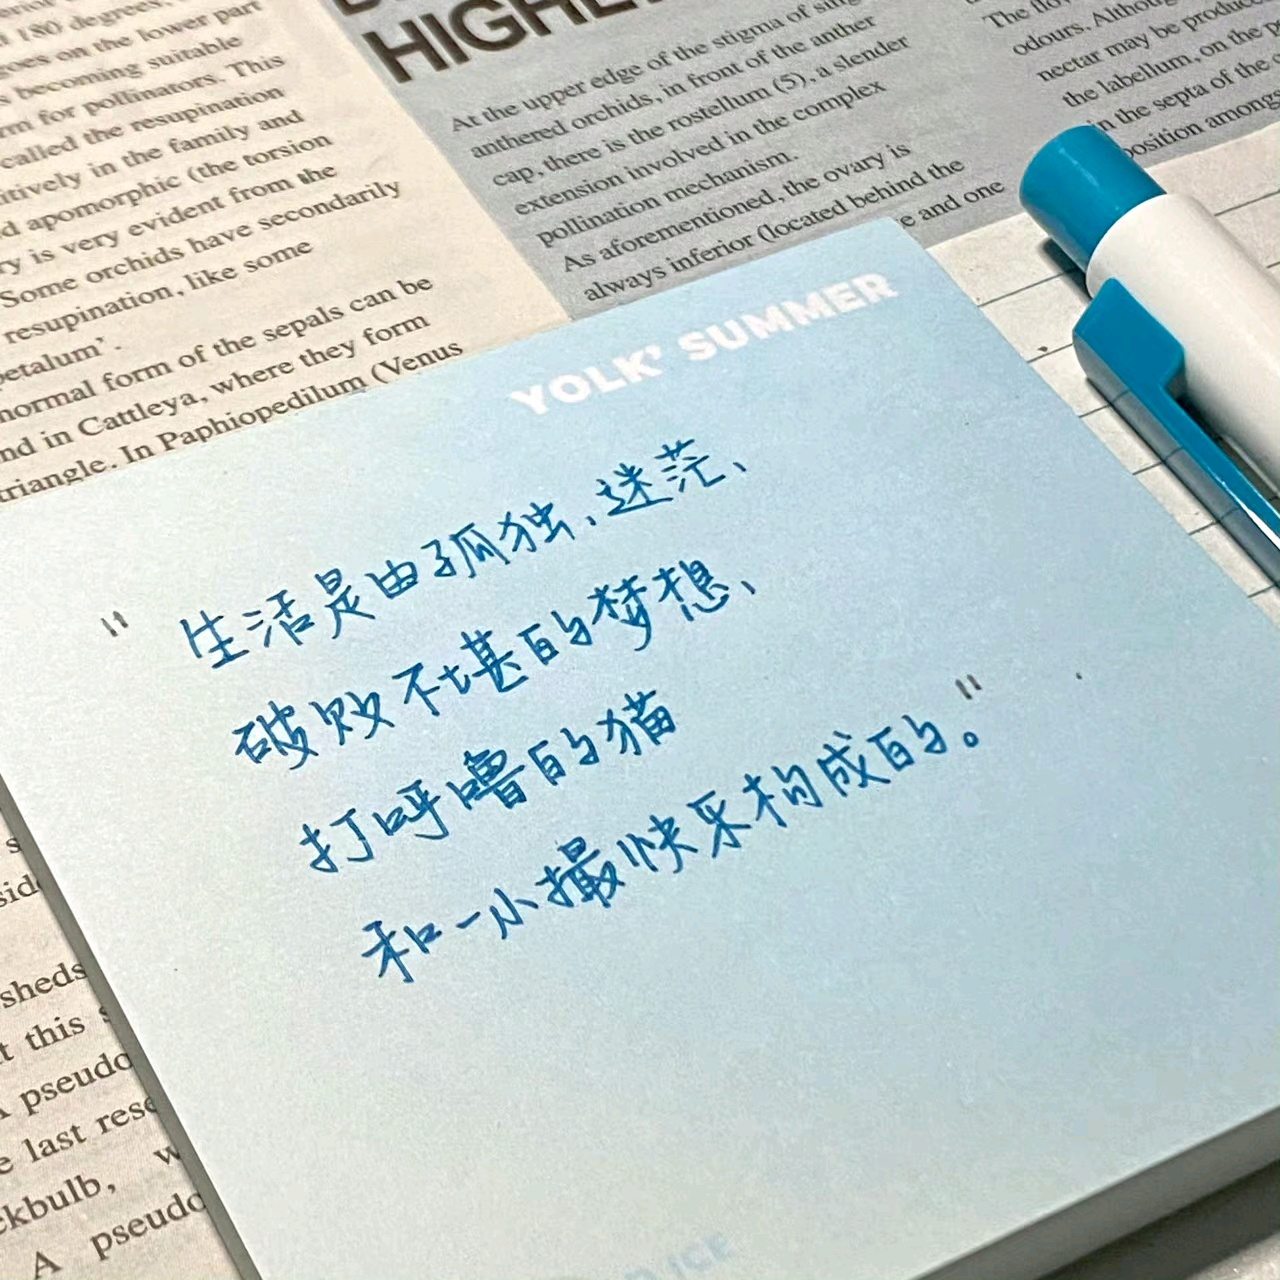 180 degrees,
goes on the lower part
becoming suitable
for pollinators. This
called the resupination
in the family and
apomorphic (the torsion
is very evident from the
Some orchids have secondarily
resupination, like some
petalum'.
normal form of the sepals can be
in Cattleya, where they form
triangle. In Paphiopedilum (Venus
HIGHE
At the upper edge of the stigma of
anthered orchids, in front of the anther
cap, there is the rostellum (5), a slender
extension involved in the complex
pollination mechanism.
As aforementioned, the ovary is
always inferior (located behind the
and one
The
odours.
nectar may be
the labellum, on the
in the septa of the
position
YOLK' SUMMER
"生活是由孤独、迷茫、
破败不堪的梦想、
打呼噜的猫
和一小撮快乐构成的。"
ICE
sheds
this
A pseudo
last
ckbulb,
A pseudo